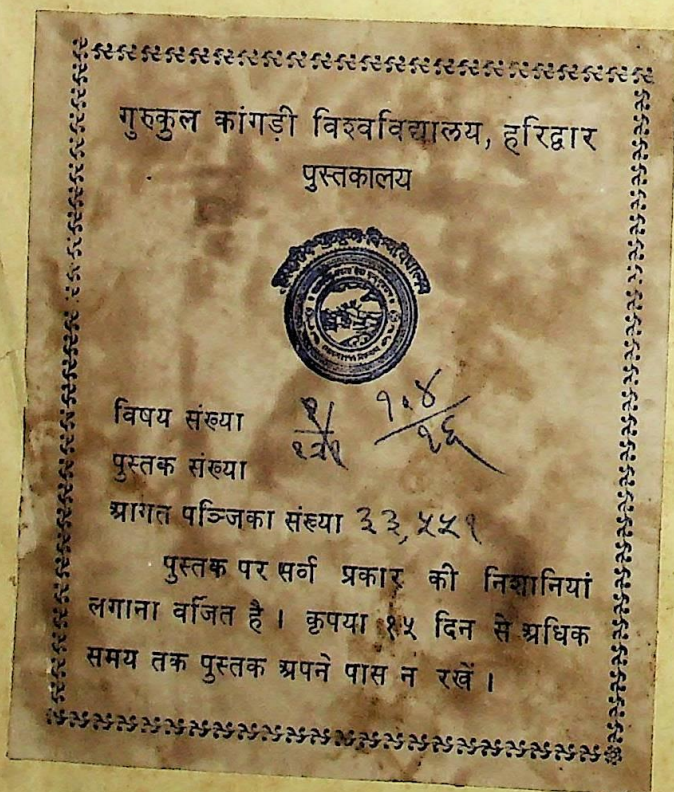 गुरुकुल कांगड़ी विश्वविद्यालय, हरिद्वार
पुस्तकालय
विषय संख्या
पुस्तक संख्या
आगत पञ्जिका संख्या ३३,५५१
पुस्तक पर सर्व प्रकार की निशानियां
लगाना वर्जित है । कृपया १५ दिन से अधिक
समय तक पुस्तक अपने पास न रखें ।